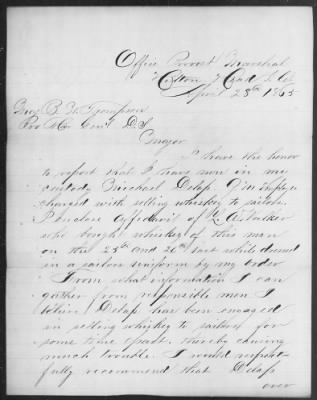 Office Provost Marshal
April 28th 1865
Pro Mar Genl D.S.
I have the honor
to report that I have now in my
custody Michael Delap
charged with selling whiskey to sailors.
I enclose Affidavit of
who bought whiskey of this man
on the 25th and 26th inst while dressed
in a sailors uniform by my order
From what information I can
gather from responsible men I
believe Delap has been engaged
in selling whiskey to sailors for
some time past. thereby causing
much trouble. I would respect-
fully recommend that Delap
over